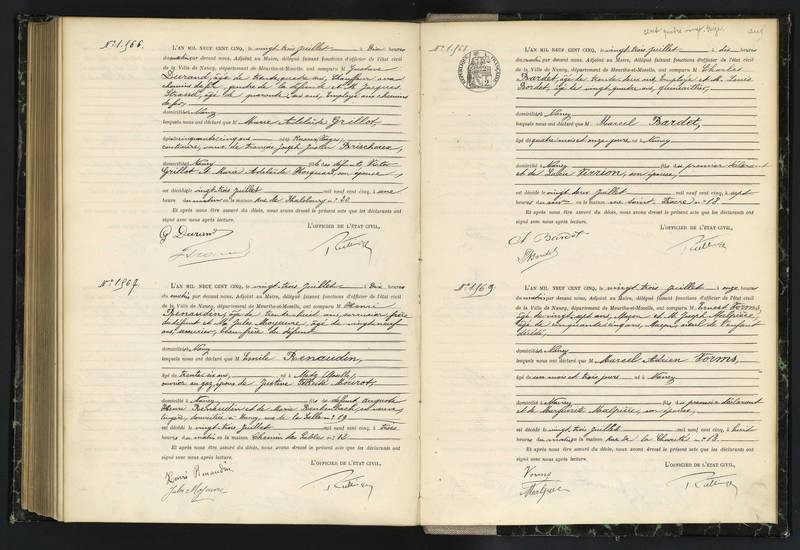 N° 1.966.
L'AN MIL NEUF CENT CINQ, le vingt trois juillet à dix heures
du matin par devant nous, Adjoint au Maire, délégué faisant fonctions d'officier de l'état civil
de la Ville de Nancy, département de Meurthe-et-Moselle, ont comparu M. Gustave
Durand, âgé de trente quatre ans, Chauffeur aux
chemins de fer, gendre de la défunte et M. Jacques
âgé de quarante six ans, Employé aux chemins
de fer,
domiciliés à Nancy
lesquels nous ont déclaré que Marie Adélaïde Grillot,
âgée cinquante cinq ans née
couturière, veuve de François Joseph Justin
domiciliée à Nancy fille des défunts Victor
Grillot et Marie Adélaïde son épouse
est décédée vingt trois juillet mil neuf cent cinq, à une
heure du matin en la maison rue de Phalsbourg n° 20
Et après nous être assuré du décès, nous avons dressé le présent acte que les déclarants ont
signé avec nous après lecture.
L'OFFICIER DE L'ÉTAT CIVIL,
G Durand
N° 1.967.
L'AN MIL NEUF CENT CINQ, le vingt trois juillet à dix heures
du matin par devant nous, Adjoint au Maire, délégué faisant fonctions d'officier de l'état civil
de la Ville de Nancy, département de Meurthe-et-Moselle, ont comparu M. Henri
Renaudin, âgé de trente huit ans, serrurier, frère
du défunt et M. Jules Mojeaure, âgé de vingt neuf
ans, serrurier, beau-frère du défunt
domiciliés à Nancy
lesquels nous ont déclaré que M Emile Renaudin,
âgé de trente six ans, né à Metz (Moselle)
ouvrier au gaz, époux de Justine
domicilié à Nancy fils de défunt Auguste
Henri Renaudin et de Marie sa veuve
domiciliée à Nancy, rue de la Salle n° 19
est décédé vingt trois juillet mil neuf cent cinq, à trois
heures du matin en la maison Chemin des Sables n° 12
Et après nous être assuré du décès, nous avons dressé le présent acte que les déclarants ont
signé avec nous après lecture.
L'OFFICIER DE L'ÉTAT CIVIL,
Henri Renaudin
Jules Mojeaure
cent quatre vingt
N° 1.968
L'AN MIL NEUF CENT CINQ, le vingt trois juillet à dix heures
du matin par devant nous, Adjoint au Maire, délégué faisant fonctions d'officier de l'état civil
de la Ville de Nancy, département de Meurthe-et-Moselle, ont comparu M. Charles
Bardot, âgé de trente ans, Employé et M. Louis
Bordet, âgé de vingt quatre ans,
domiciliés à Nancy
lesquels nous ont déclaré que M Marcel Bardot,
âgé de quatre mois et onze jours né à Nancy
domicilié à Nancy fils du premier déclarant
et de Vairion, son épouse,
est décédé le vingt deux juillet mil neuf cent cinq, à sept
heures du soir en la maison rue Saint n° 18
Et après nous être assuré du décès, nous avons dressé le présent acte que les déclarants ont
signé avec nous après lecture.
L'OFFICIER DE L'ÉTAT CIVIL,
Ch Bardot
L Bordet
N° 1.969.
L'AN MIL NEUF CENT CINQ, le vingt trois juillet à onze heures
du matin par devant nous, Adjoint au Maire, délégué faisant fonctions d'officier de l'état civil
de la Ville de Nancy, département de Meurthe-et-Moselle, ont comparu M. Ernest Vorms,
âgé de vingt sept ans, Maçon et M. Joseph Malpière,
âgé de cinquante cinq ans, Maçon, aïeul de l'enfant
décédé,
domiciliés à Nancy
lesquels nous ont déclaré que M Marcel Adrien Vorms,
âgé de un mois et trois jours né à Nancy
domicilié à Nancy fils du premier déclarant
et de Marguerite Malpière, son épouse,
est décédé vingt trois juillet mil neuf cent cinq, à huit
heures du matin en la maison rue de la n° 13
Et après nous être assuré du décès, nous avons dressé le présent acte que les déclarants ont
signé avec nous après lecture.
L'OFFICIER DE L'ÉTAT CIVIL,
Vorms
Malpière